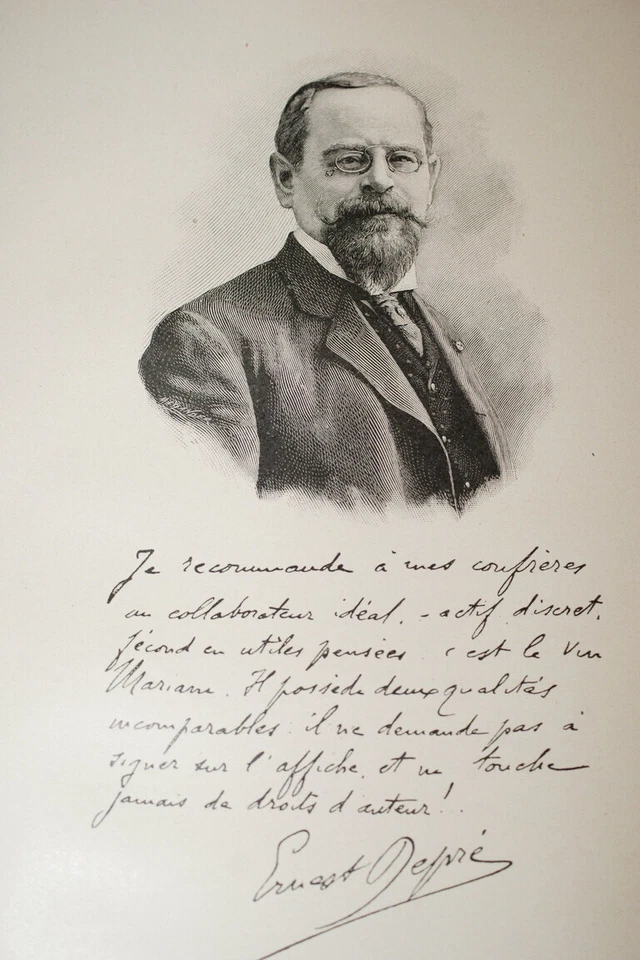 Je recommande à mes confrères
un collaborateur idéal. - actif, discret,
fécond en utiles pensées : c'est le Vin
Mariani. Il possède deux qualités
incomparables : il ne demande pas à
signer sur l'affiche, et ne touche
jamais de droits d'auteur !
Ernest Depré